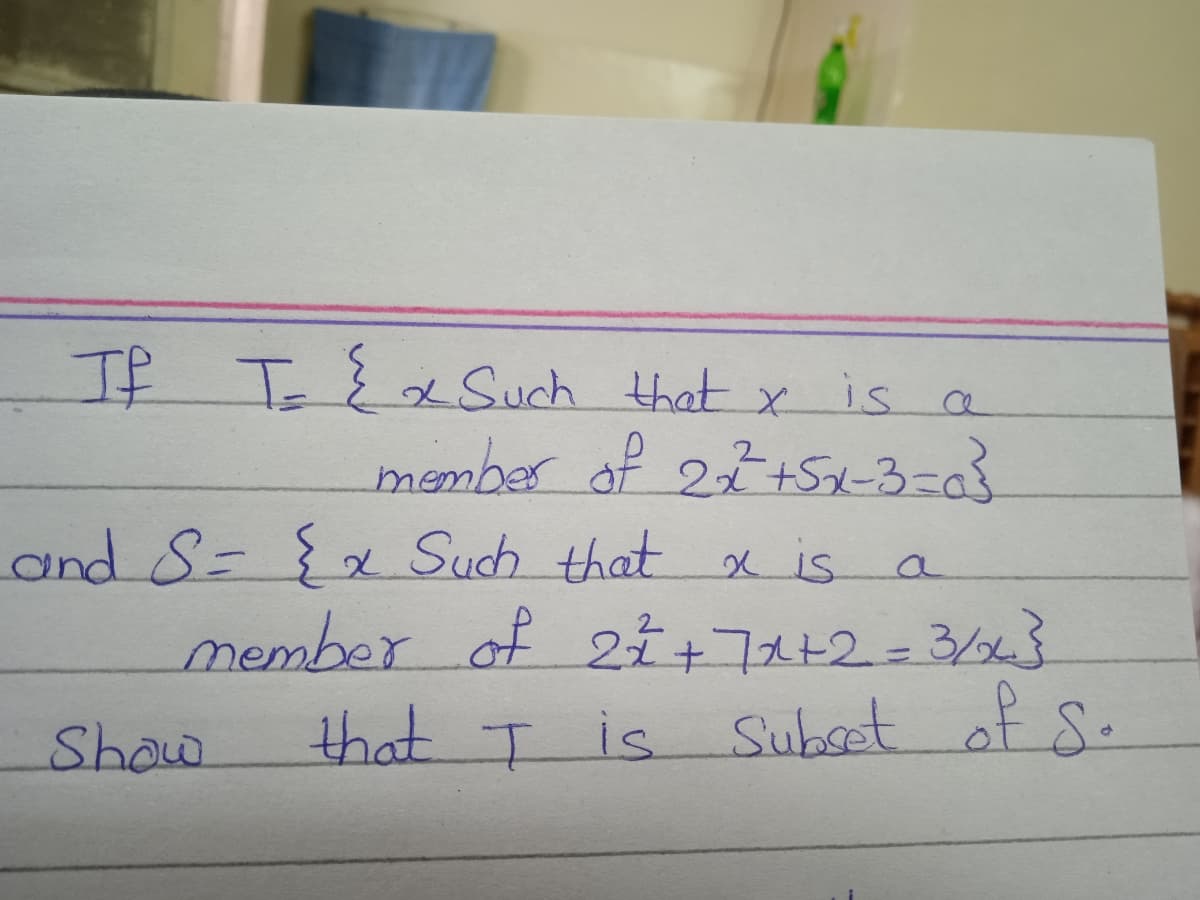 If T= { x Such that x is a
member of 2x²+5x-3=0}
and S= { x Such that x is a
member of 2x²+7x+2=3/x}
Show that T is Subset of S.